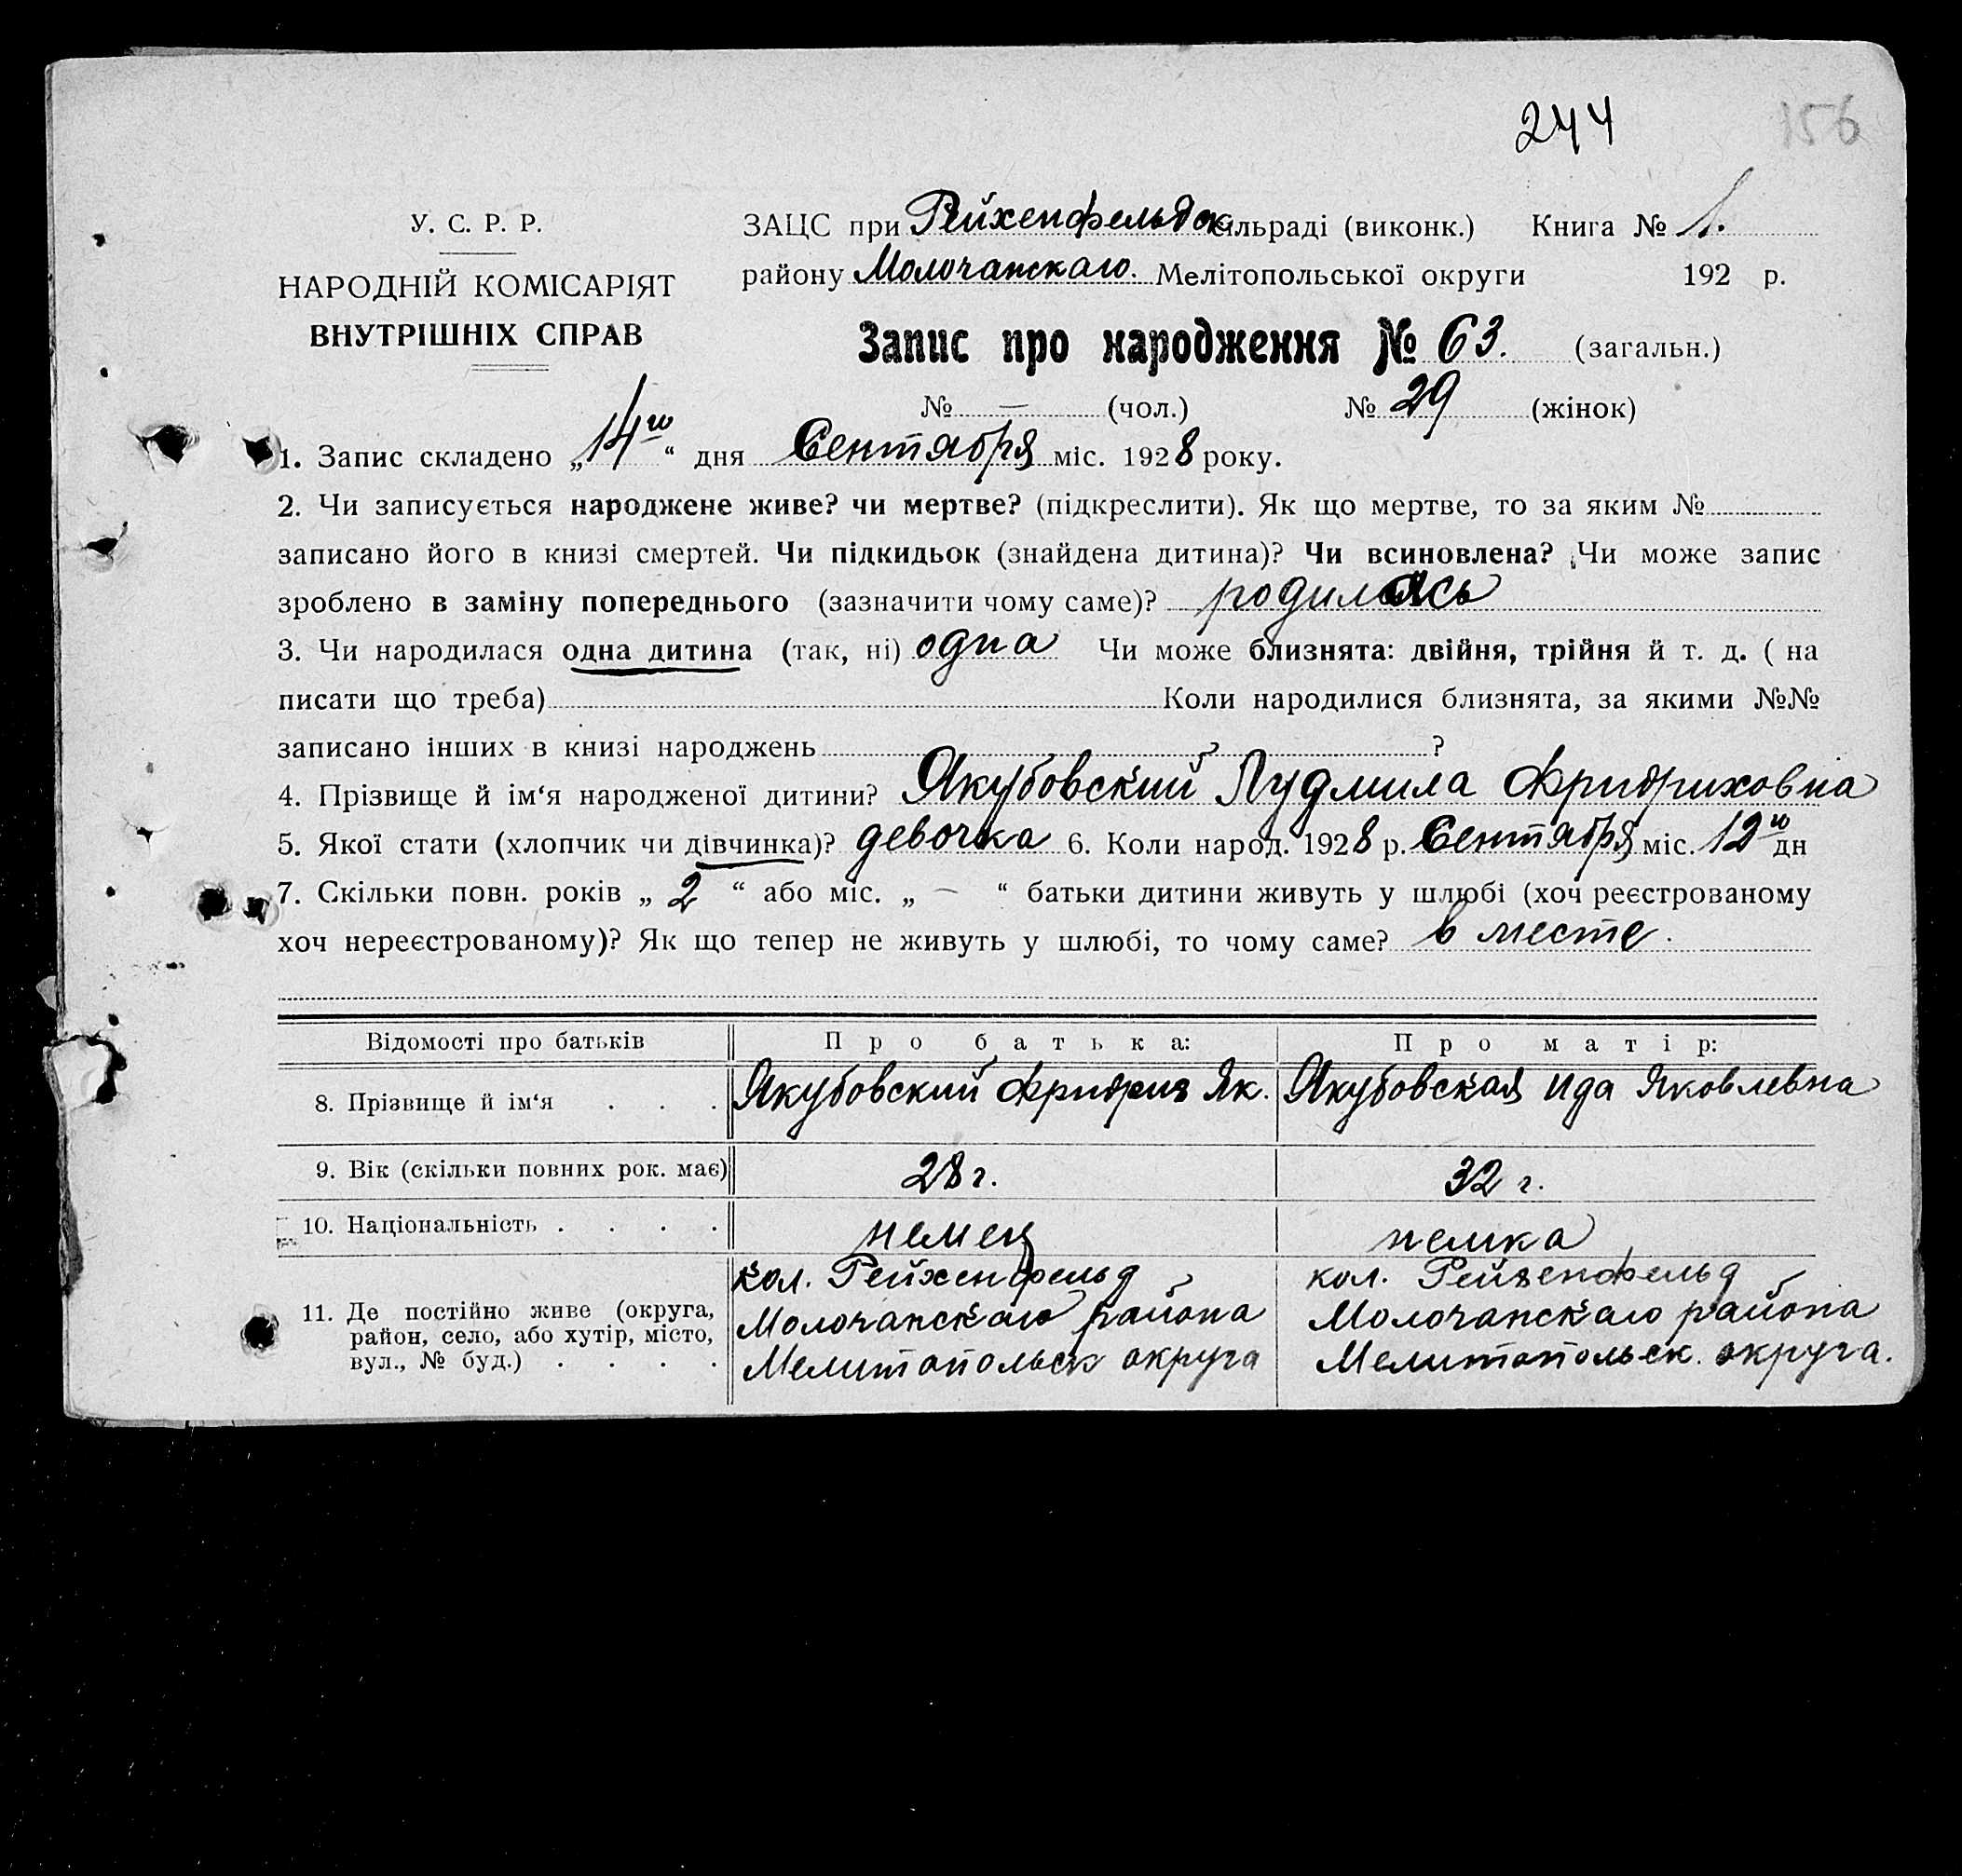 244 156
У. С. Р. Р.
НАРОДНІЙ КОМІСАРІЯТ
ВНУТРІШНІХ СПРАВ
ЗАЦС при Рейхенфельдск сільраді (виконк.) Книга № 1.
району Молочанскаго. Мелітопольської округи 192 р.
Запис про народження № 63. (загальн.)
№ — (чол.) № 29 (жінок)
1. Запис складено „14го“ дня Сентября міс. 1928 року.
2. Чи записується народжене живе? чи мертве? (підкреслити). Як що мертве, то за яким №
записано його в книзі смертей. Чи підкидьок (знайдена дитина)? Чи всиновлена? Чи може запис
зроблено в заміну попереднього (зазначити чому саме)? родилась
3. Чи народилася одна дитина (так, ні) одна Чи може близнята: двійня, трійня й т. д. ( на
писати що треба) Коли народилися близнята, за якими №№
записано інших в книзі народжень ?
4. Прізвище й ім‘я народженої дитини? Якубовский Лудмила Фридриховна
5. Якої стати (хлопчик чи дівчинка)? девочка 6. Коли народ. 1928 р. Сентября міс. 12го дн
7. Скільки повн. років „ 2 “ або міс. „ — “ батьки дитини живуть у шлюбі (хоч реєстрованому
хоч нереєстрованому)? Як що тепер не живуть у шлюбі, то чому саме? в месте.
Відомості про батьків Про батька: Про матір:
8. Прізвище й ім‘я . . . Якубовский Фридрих Як. Якубовская Ида Яковлевна
9. Вік (скільки повних рок. має) 28 г. 32 г.
10. Національність . . . . немец немка
11. Де постійно живе (округа, район, село, або хутір, місто, вул., № буд.) . . . .
кол. Рейхенфельд
Молочанскаго района
Мелитопольск округа
кол. Рейхенфельд
Молочанскаго района
Мелитопольск. округа.